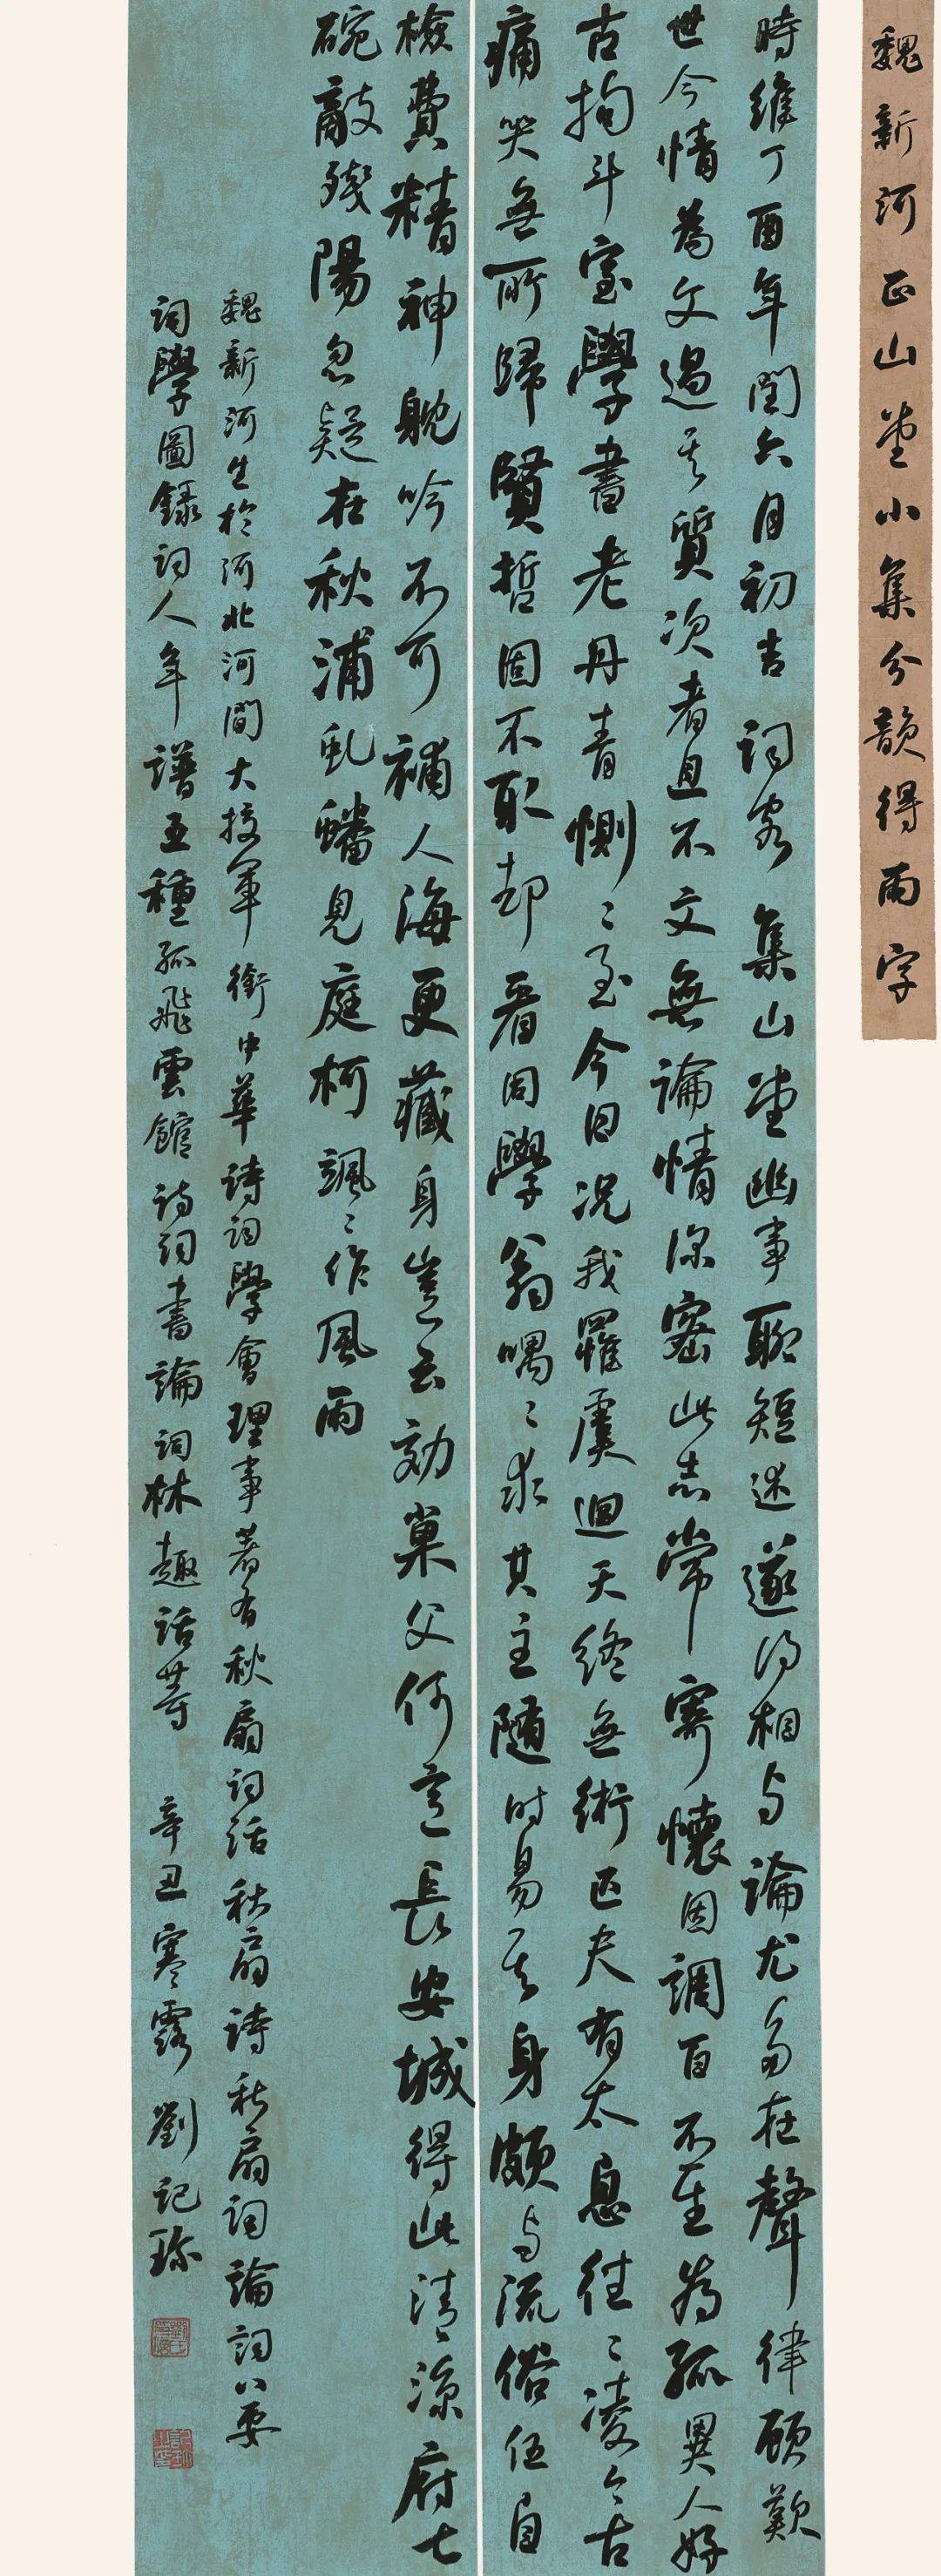 魏新河正山堂小集分韻得雨字
時維丁酉年閏六月初吉詞客集山堂幽事聊短述遂乃相與論尤多在聲律顧歎
世今情為文過其質次者且不文無論情深密此志常寥懷因調百不至為孤異人好
古拘斗室學書老丹青惻〻至今日況我羅虞迴天終無術匹夫有太息往〻淩今古
痛哭無所歸賢哲固不取却看同學翁喁〻求其主隨時易其身頗與流俗伍自
檢費精神躭吟不可補人海更藏身豈云効巢父何意長安城得此清涼府七
碗敲殘陽忽疑在秋浦虬蟠見庭柯颯〻作風雨
魏新河生於河北河間大校軍銜中華詩詞學會理事著有秋扇詞話秋扇詩秋扇詞論詞八要
詞學圖錄詞人年譜五種孤飛雲館詩詞書論詞林趣話等 辛丑寒露劉記珍